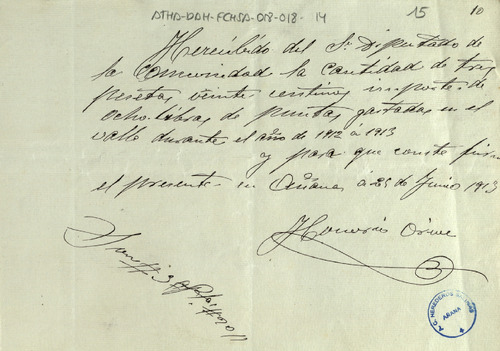 ATHA-DAH-FCHSA-018-018-14
15
10
He recibido del Sr. Diputado de
la Comunidad la cantidad de tres
pesetas veinte centimos importe de
ocho libras de puntas gastadas en el
valle durante el año de 1912 a 1913
y para que conste firmo
el presente en Añana á 25 de Junio 1913
Honorio
AÑANA
4